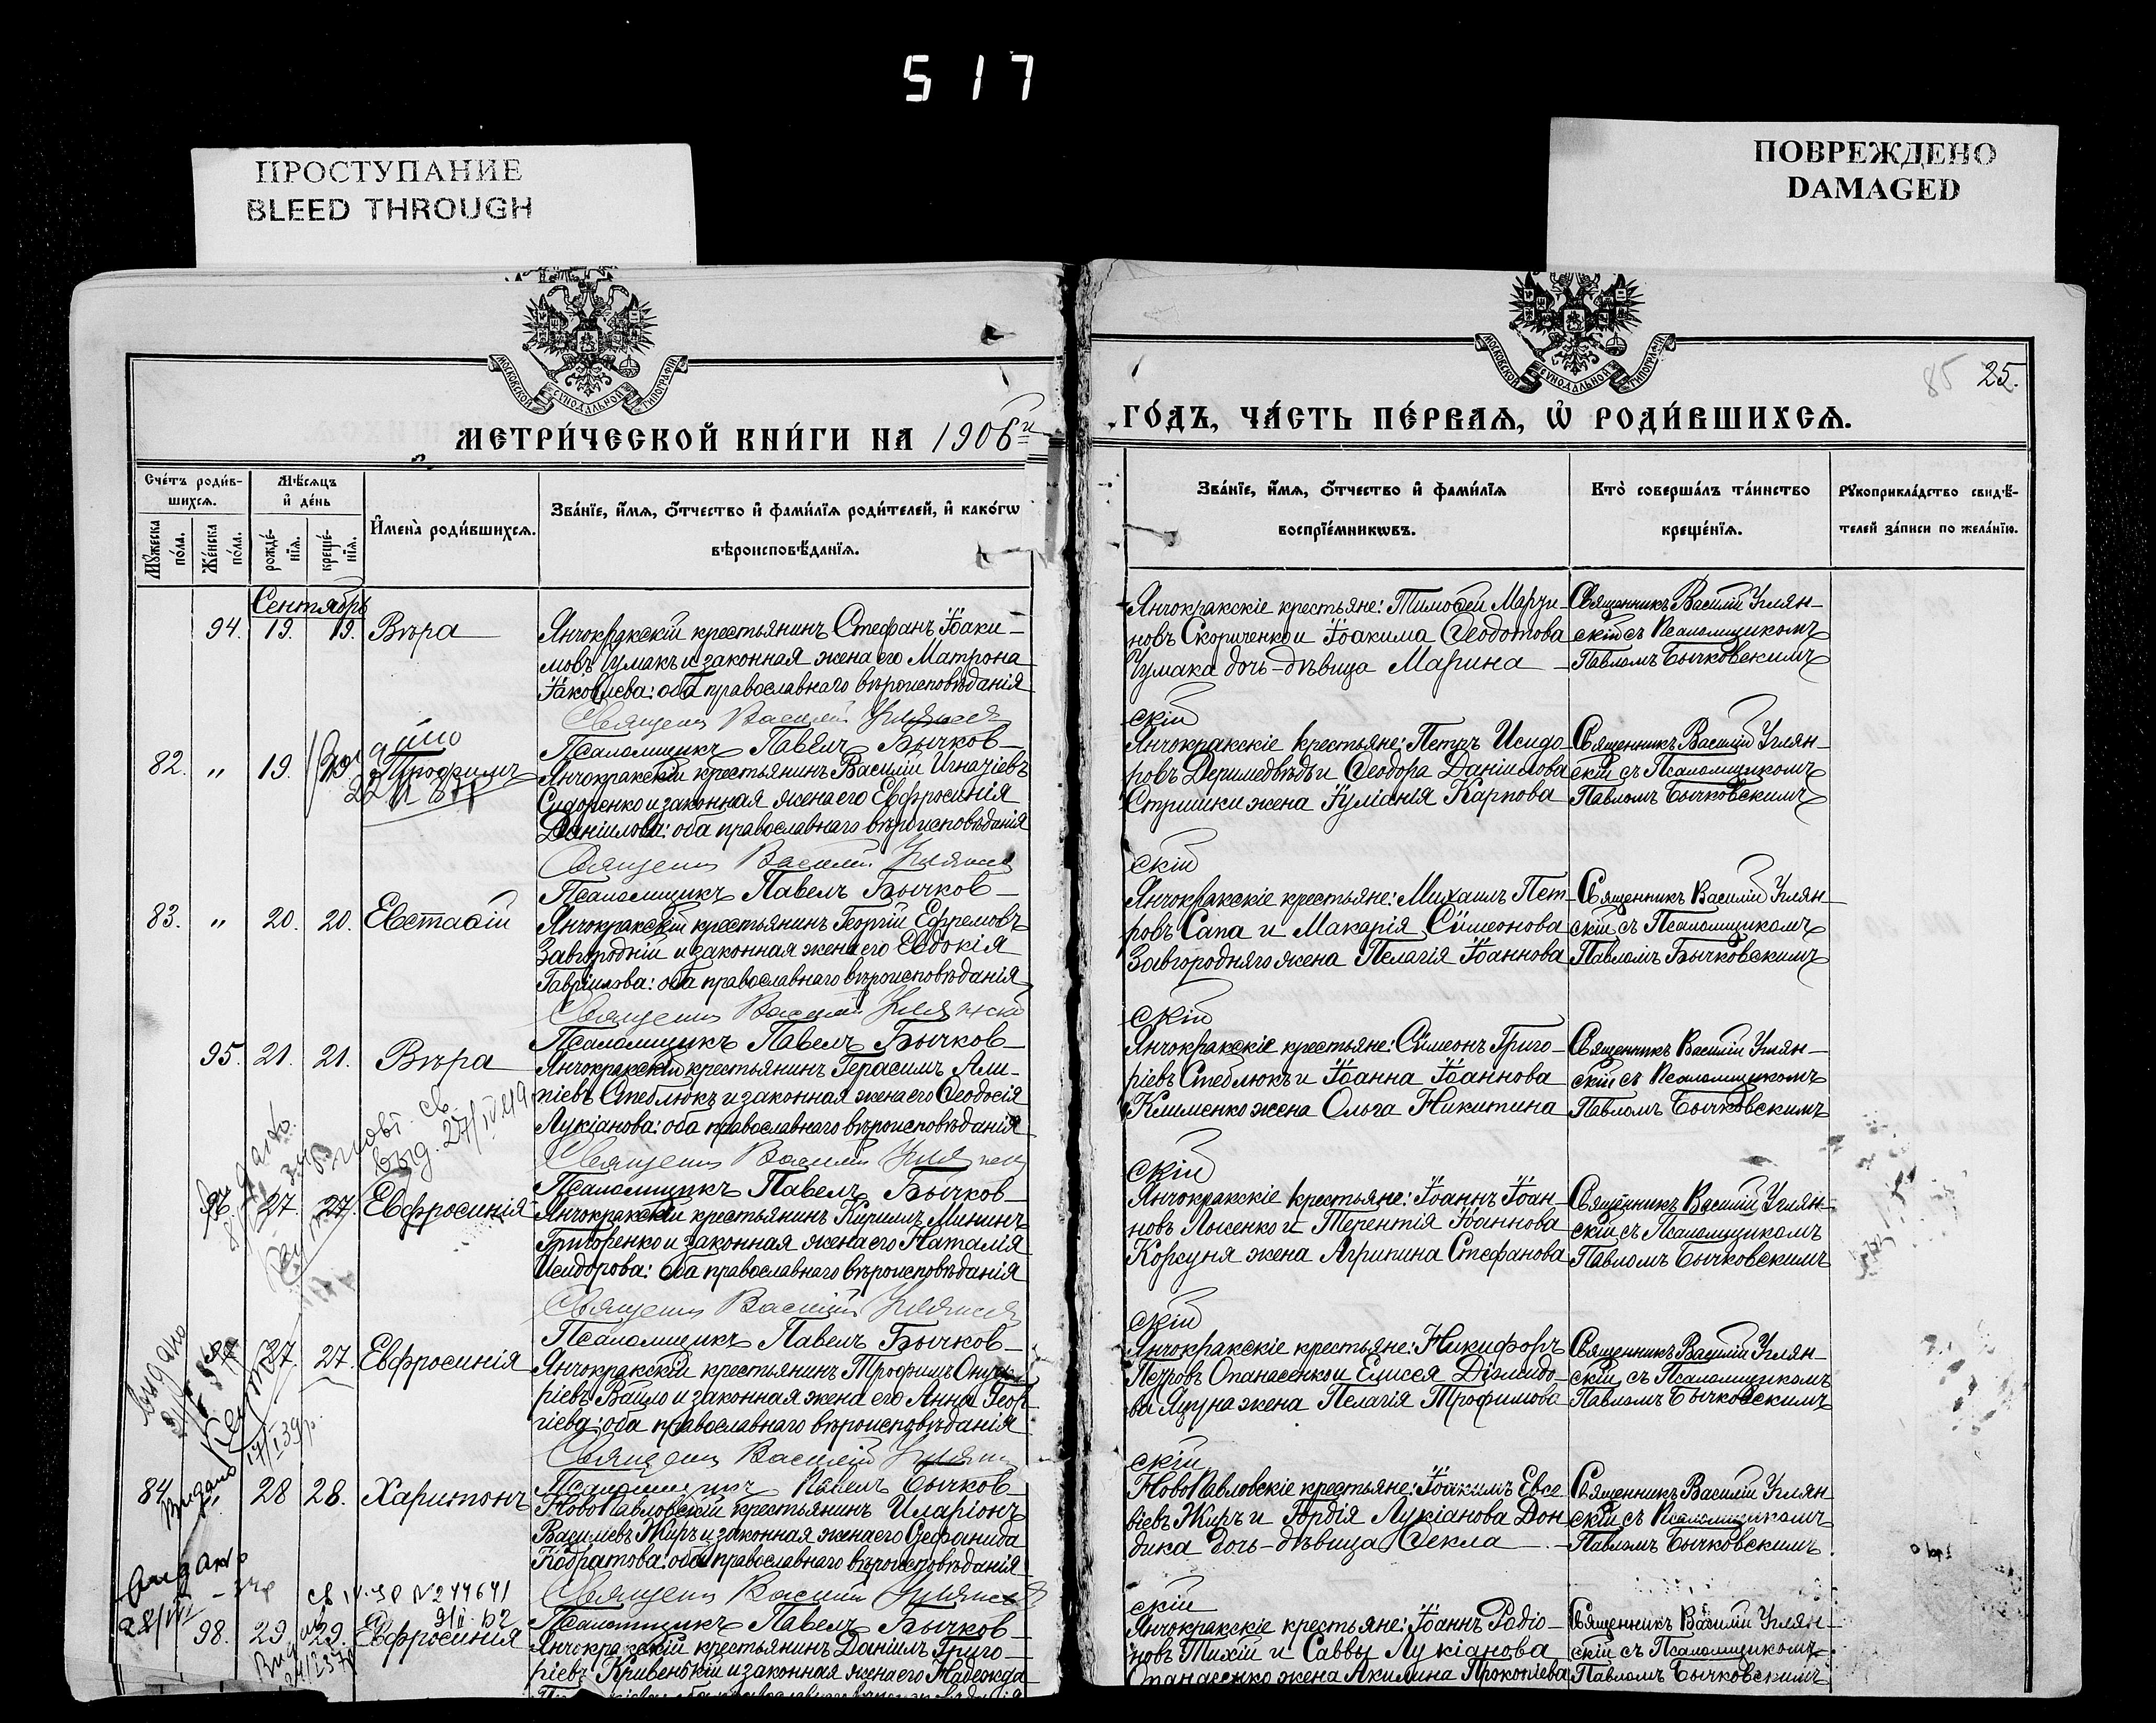 517
ПРОСТУПАНИЕ
BLEED THROUGH
ПОВРЕЖДЕНО
DAMAGED
МОСКОВСКОЙ СѴНОДАЛЬНОЙ ТИПОГРАФІИ
МОСКОВСКОЙ СѴНОДАЛЬНОЙ ТИПОГРАФІИ
85 25.
МЕТРИ́ЧЕСКОЙ КНИ́ГИ НА 1906й
ГО́ДЪ, ЧА́СТЬ ПЕ́РВАѦ, Ѡ҆ РОДИ́ВШИХСѦ.
Сче́тъ роди́в-
шихсѧ.
Мꙋжеска по́ла.
Же́нска по́ла.
Мѣ́сѧцъ
и҆ де́нь
рожде́-
нїѧ.
креще́-
нїѧ.
И҆мена̀ роди́вшихсѧ.
Зва́нїе, и҆́мѧ, ѻ҆́тчество и҆ фами́лїѧ роди́телей, и҆ како́гѡ
вѣроисповѣ́данїѧ.
Зва́нїе, и҆́мѧ, ѻ҆́тчество и҆ фами́лїѧ
воспрїе́мникѡвъ.
Кто̀ соверша́лъ та́инство
креще́нїѧ.
Рꙋкоприкла́дство свидѣ́-
телей за́писи по жела́нїю.
Сентябрь
94. 19. 19. Вѣра
Янчокракскій крестьянинъ Стефанъ Іоаки-
мовъ Чумакъ и законная жена его Матрона
Іаковлева: оба православнаго вѣроисповѣданія
Янчокракскіе крестьяне: Тимоѳей Марти-
новъ Скориченко и Іоакима Ѳеодотова
Чумака дочь-дѣвица Марина
Священникъ Василій Углян-
скій съ Псаломщикомъ
Павломъ Бычковскимъ
Священ. Василій Углянскій
Псаломщикъ Павелъ Бычков-
скій
82. „ 19. 19. Трофимъ
Янчокракскій крестьянинъ Василій Игнатіевъ
Сидоренко и законная жена его Евфросинія
Даніилова: оба православнаго вѣроисповѣданія
Янчокракскіе крестьяне: Петръ Исидо-
ровъ Деримедвѣдь и Ѳеодора Даніилова
Стришки жена Іуліанія Карпова
Священникъ Василій Углян-
скій съ Псаломщикомъ
Павломъ Бычковскимъ
Священ. Василій Углянскій
Псаломщикъ Павелъ Бычков-
скій
83. „ 20. 20. Евстаѳій
Янчокракскій крестьянинъ Георгій Ефремовъ
Завгородній и законная жена его Евдокія
Гавріилова: оба православнаго вѣроисповѣданія
Янчокракскіе крестьяне: Михаилъ Пет-
ровъ Сапа и Макарія Сѵмеонова
Завгородняго жена Пелагія Іоаннова
Священникъ Василій Углян-
скій съ Псаломщикомъ
Павломъ Бычковскимъ
Священ. Василій Углянскій
Псаломщикъ Павелъ Бычков-
скій
95. 21. 21. Вѣра
Янчокракскій крестьянинъ Герасимъ Али-
піевъ Стеблюкъ и законная жена его Ѳеодосія
Лукіанова: оба православнаго вѣроисповѣданія
Янчокракскіе крестьяне: Сѵмеонъ Григо-
ріевъ Стеблюкъ и Іоанна Іоаннова
Клименко жена Ольга Никитина
Священникъ Василій Углян-
скій съ Псаломщикомъ
Павломъ Бычковскимъ
Повт. св.
выд. 27/IV 49
Священ. Василій Углянскій
Псаломщикъ Павелъ Бычков-
скій
96. 27. 27. Евфросинія
Янчокракскій крестьянинъ Кириллъ Мининъ
Григоренко и законная жена его Наталія
Исидорова: оба православнаго вѣроисповѣданія
Янчокракскіе крестьяне: Іоаннъ Іоан-
новъ Лысенко и Терентія Іоаннова
Корсуня жена Агрипина Стефанова
Священникъ Василій Углян-
скій съ Псаломщикомъ
Павломъ Бычковскимъ
Священ. Василій Углянскій
Псаломщикъ Павелъ Бычков-
скій
27. 27. Евфросинія
Янчокракскій крестьянинъ Трофимъ Онуф-
ріевъ Вайло и законная жена его Анна Геор-
гіева: оба православнаго вѣроисповѣданія
Янчокракскіе крестьяне: Никифоръ
Петровъ Опанасенко и Елисея Діомидо-
ва Яцуна жена Пелагія Трофимова
Священникъ Василій Углян-
скій съ Псаломщикомъ
Павломъ Бычковскимъ
видано
17/I 39р.
Священ. Василій Углянскій
Псаломщикъ Павелъ Бычков-
скій
84. „ 28 28. Харитонъ
НовоПавловскій крестьянинъ Иларіонъ
Василіевъ Жиръ и законная жена его Стефанида
Кодратова: оба православнаго вѣроисповѣданія
НовоПавловскіе крестьяне: Іоакимъ Евсе-
віевъ Жиръ и Гордія Лукіанова Дон-
дика дочь-дѣвица Ѳекла
Священникъ Василій Углян-
скій съ Псаломщикомъ
Павломъ Бычковскимъ.
видано
видано
28/VII
Священ. Василій Углянскій
Псаломщикъ Павелъ Бычков-
скій
98. 29. 29. Евфросинія
Янчокракскій крестьянинъ Даніилъ Григо-
ріевъ Кривенькій и законная жена его Надежда
Янчокракскіе крестьяне: Іоаннъ Родіо-
новъ Тихій и Саввы Лукіанова
Опанасенко жена Акилина Прокопіева
Священникъ Василій Углян-
скій съ Псаломщикомъ
Павломъ Бычковскимъ